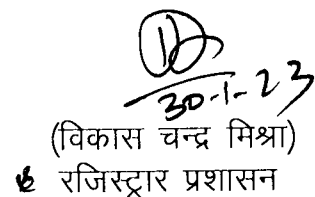 30-1-23
(विकास चन्द्र मिश्रा)
रजिस्ट्रार प्रशासन